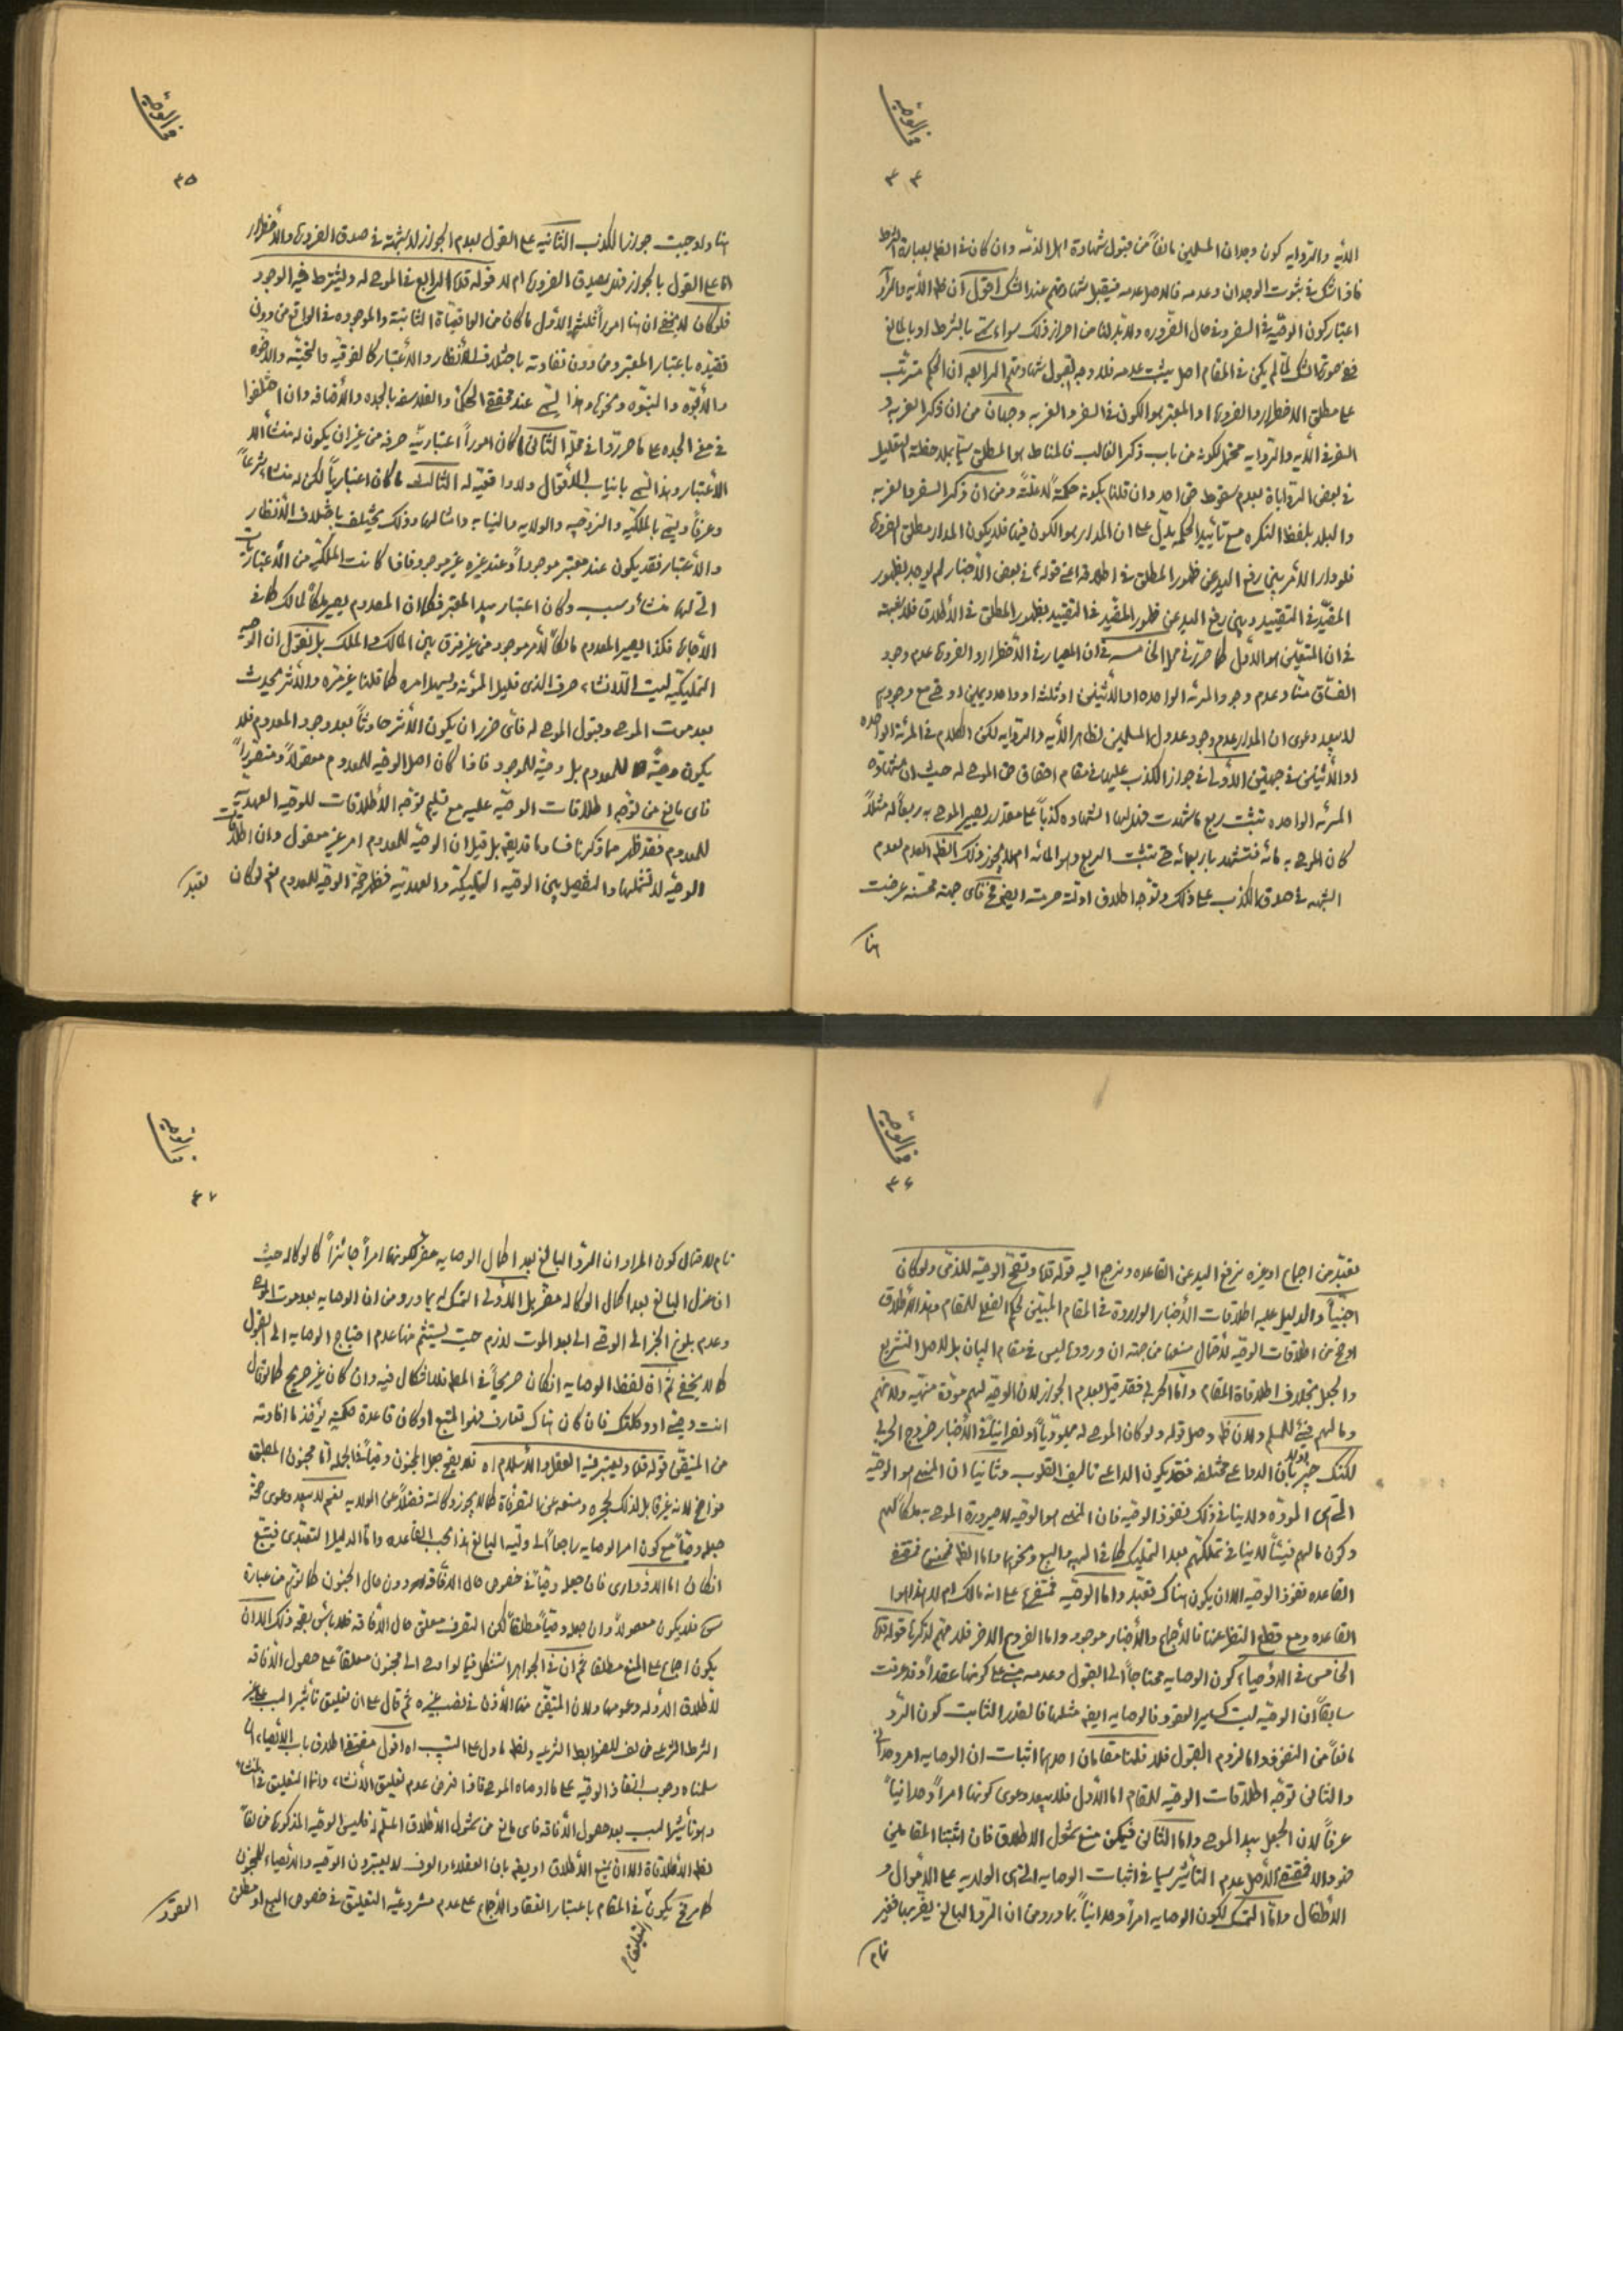 في الوصية
٣٤
الآية والرواية كون وجدان المسلمين مانعاً من قبول شهادة اهل الذمة وان كان في النظم بعبارة الشرط
فاذا شك في ثبوت الوجدان وعدمه فالاصل عدمه فيقبل شهادتهم عند الشك اقول ان ظ الآية والرواية
اعتبار كون الوصية في السفر وفي حال الضرورة ولابد لنا من احراز ذلك سواء سمي بالشرط او بالمانع
ففي صورة الشك لم يكن في المقام اصل يثبت عدمه فلا وجه لقبول شهادتهم الرابعه ان الحكم مترتب
على مطلق الاضطرار والضرورة او المعتبر هو الكون في السفر والغربه وجهان من ان ذكر الغربه و
السفر في الآيه والروايه محتمل لكونه من باب ذكر الغالب فالمناط هو المطلق سيما بملاحظة التعليل
في بعض الروايات بعدم سقوط حق احد وان قلنا بكونه حكمةً لا علةً ومن ان ذكر السفر والغربه
والبلد بلفظ النكره مع تأييد الحكمه يدل على ان المدار هو الكون فيها فلا يكون المدار مطلق الضرورة
فلو دار الامر بين رفع اليد عن ظهور المطلق في اطلاقه اعني قوله في بعض الاخبار لم يوجد بظهور
المقيد في التقييد وبين رفع اليد عن ظهور المقيد في التقييد بظهور المطلق في الاطلاق فلا شبهة
في ان المتعين هو الاول كما حرر في محله الخامسه في ان المعيار في الاضطرار والضرورة عدم وجود
الفساق منا وعدم وجود المرئه الواحده او الاثنين او ثلثه او واحد ويمين او حتى مع وجودهم
لا يبعد دعوى ان المدار عدم وجود عدول المسلمين لظاهر الآيه والروايه لكن الكلام في المرئة الواحده
او الاثنين في جهتين الاولى في جواز الكذب عليها في مقام احقاق حق الموصى له حيث ان شهادة
المرئه الواحده تثبت ربع ما شهدت فهل لها الشهاده كذباً على مقدار يصير الموصى به ربعاً له مثلاً
كان الموصى به مائه فتشهد باربعمائه حتى تثبت الربع وهو المائه ام لا يجوز ذلك الظ العدم لعدم
الشبهه في صدق الكذب على ذلك وتوجه اطلاق ادلة حرمته اليه فاي جهة محسنه عرضت
هنا
في الوصية
٣٥
هنا ولا وجبت جواز الكذب الثانيه على القول بعدم الجواز لا شبهة في صدق الضرورة والاضطرار
اما على القول بالجواز فهل يصدق الضرورة ام لا قوله قده الرابع في الموصى له ويشترط فيه الوجود
فلو كان لا يخفى ان هنا اموراً ثلثه الاول ما كان من الواقعيات الثابتة والموجوده في الواقع من دون
تقيده باعتبار المعتبر ومن دون تفاوته باختلاف الانظار والاعتبار كالفوقيه والتحتيه والاخوه
والابوه والبنوه ونحوها وهذا ليس عند محققي الحكماء والفلاسفه بالجده والاضافه وان اختلفوا
في معنى الجده على ما حرروا في محله الثاني ما كان اموراً اعتباريه صرفه من غير ان يكون له منشأ الا
الاعتبار وهذا ليس بانياب الاغوال ولا واقعية له الثالث ما كان اعتبارياً لكن له منشأ شرعاً
وعرفاً ويسمى بالملكية والزوجيه والولايه والنيابه وامثالها وذلك يختلف باختلاف الانظار
والاعتبار فقد يكون عند معتبر موجوداً وعند غيره غير موجود فاذا كانت الملكية من الاعتباريات
التي لها منشأ وسبب وكان اعتبار بيد المعتبر فكما ان المعدوم يصير ملكاً لمالك كما في
الاجارة فكذا يصير المعدوم مالكاً لامر موجود من غير فرق بين المالك والملك بل نقول ان الوصيه
التمليكيه ليست الا انشاء صرف الذي قليل المؤنه وسهل امره كما قلنا غير مرة والاثر يحدث
بعد موت الموصي وقبول الموصى له فاي ضرر ان يكون الاثر حادثاً بعد وجود المعدوم فلا
يكون وصيّة للمعدوم بل وصيّة للموجود فاذا كان اصل الوصيه للمعدوم معقولاً ومتصوراً
فاي مانع من توجه اطلاقات الوصيه عليه مع تسليم توجه الاطلاقات للوصيه العهديه
للمعدوم فقد ظهر مما ذكرنا فساد ما قد يقع بل قيل ان الوصيه للمعدوم امر غير معقول وان اطلاقات
الوصيه لا تشملها والتفصيل بين الوصيه التمليكيه والعهديه فظهر صحة الوصيه للمعدوم نعم لو كان
تعبد
في الوصية
٣٦
تعبد من اجماع او غيره نرفع اليد عن القاعده ونرجع اليه قوله قده وتصح الوصيه للذمي ولو كان
اجنبياً والدليل عليه اطلاقات الاخبار الواردة في المقام المبين لحكم الفعل للمقام وهذه الاطلاقات
اوضح من اطلاقات الوصيه لاحتمال منعها من جهة ان ورودها ليس في مقام البيان بل لاصل التشريع
والجعل بخلاف اطلاقات المقام واما الحربي فقد قيل بعدم الجواز لان الوصيه لهم مودة منهيه ولانهم
ومالهم فيئ للمسلم ولان ظ وصل قوله ولو كان الموصى له يهودياً او نصرانياً في الاخبار خروج الحربي
لكنك خبير اولا بان الدواعي مختلفه فقد يكون الداعي تاليف القلوب وثانيا ان المنهي هو الوصيه
التي هي المودة ولا ينافي ذلك نفوذ الوصيه فان المنهي هو الوصيه لا صيرورة الموصى به ملكاً لهم
وكون مالهم فيئاً لا ينافي تملكهم بعد التمليك كما في الهبه والبيع ونحوها واما الظ فمقتضى
القاعده نفوذ الوصيه الا ان يكون هناك تعبد واما الوصيه فمتفرع على انه مالك ام لا هذا هو
القاعده ومع قطع النظر عنها فالاجماع والاخبار موجود واما الفروع الاخر فلا مهم لذكرها قوله قده
الخامس في الاوصياء كون الوصايه محتاجاً الى القبول وعدمه مبني على كونها عقداً وقد عرفت
سابقاً ان الوصيه ليست كساير العقود فالوصايه ايضاً مثلها فالقدر الثابت كون الرد
مانعاً من النفوذ واما لزوم القبول فلا فلنا مقامان احدهما اثبات ان الوصايه امر وحداني
والثاني توجه اطلاقات الوصيه للمقام اما الاول فلا يبعد دعوى كونها امراً وحدانياً
عرفاً لان الجعل بيد الموصي واما الثاني فيمكن منع شمول الاطلاق فان اثبتنا المقامين
فهو والا فمقتضى الاصل عدم التأثير سيما في اثبات الوصايه التي هي الولايه على الاموال و
الاطفال واما التمسك لكون الوصايه امراً وحدانياً بما ورد من ان الرد البالغ يضر بها فغير
تام
في الوصية
٣٧
تام لاحتمال كون المراد ان الرد البالغ بعد اكمال الوصايه مضر لكونها امراً جائزاً كالوكاله حيث
ان عزل البالغ بعد اكمال الوكاله مضر بل الاولى التمسك له بما ورد من ان الوصايه بعد موت الموصي
وعدم بلوغ الخبر الى الوصي الى بعد الموت لازم حيث يستشم منها عدم احتياج الوصايه الى القبول
كما لا يخفى ثم ان لفظ الوصايه ان كان صريحاً في المطلب فلا اشكال فيه وان كان غير صريح كما لو قال
انت وصيي او وكلتك فان كان هناك تعارف فهو المتبع او كان قاعدة حكميه يؤخذ ما افادته
من المتيقن قوله قده ويعتبر فيه العقل والاسلام اه فلا يصح جعل المجنون وصياً في الجمله اما مجنون المطبق
فواضح لانه غير قابل لذلك لحجره ومنعه عن التصرفات كما لا يجوز وكالته فضلاً عن الولايه نعم لا يبعد دعوى صحة
جعله وصياً مع كون امر الوصايه راجعاً الى وليه البالغ هذا بحسب القاعده واما الدليل التعبدي فيتبع
ان كان اما الادواري فان جعله وصياً في خصوص حال الافاقه دون حال الجنون كما توهم من عبارة
ش فلا يكون معقولاً وان جعله وصياً مطلقاً لكن التصرف معلق حال الافاقه فلا باس بصحة ذلك الا ان
يكون اجماع على المنع مطلقا ثم ان في الجواهر استشكل فيما لو اوصى الى مجنون معلقاً على حصول الافاقه
لاطلاق الادله وعمومها ولان المتيقن منها الاذن في نصب غيره ثم قال على ان تعليق تأثير السبب على غير
الشرط الشرعي مخالف للضوابط الشرعيه ولظ ما دل على التسبيب اه اقول مقتضى اطلاق باب الايصاء ان
سلمناه وجوب انفاذ الوصيه على ما اوصاه الموصي فاذا فرض عدم تعليق الانشاء وانما التعليق في المنشاء
وهو تأثير السبب بعد حصول الافاقه فاي مانع من شمول الاطلاق المسلم له فليس الوصيه المذكورة مخالفاً
لظ الاطلاقات الا ان يمنع الاطلاق او يقع بان العقلاء والعرف لا يعتبرون الوصيه والايصاء للمجنون
كما مر يكون في المقام باعتبار انعقاد الاجماع على عدم مشروعية التعليق في خصوص البيع او مطلق
العقود